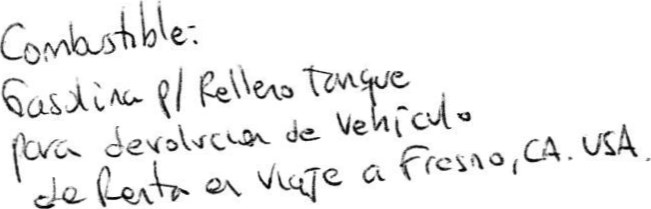 Combustible:
Gasolina p/ Relleno Tanque
para devolucion de vehiculo
de Renta en viaje a Fresno, CA. USA.